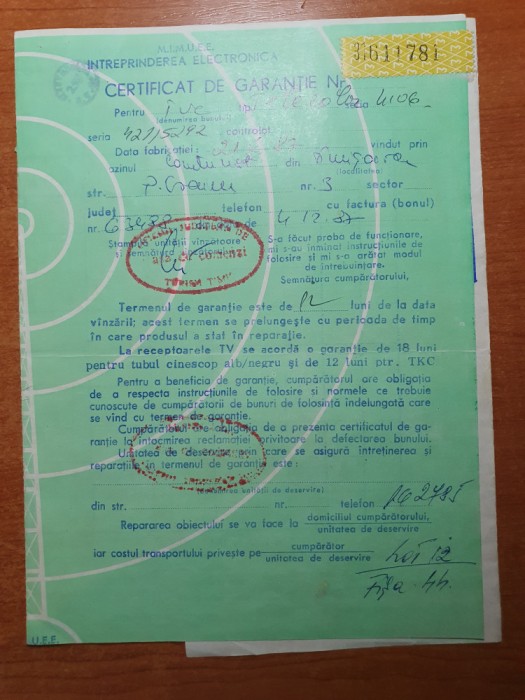 M.I.M.U.E.E.
INTREPRINDEREA ELECTRONICA
31611781
CERTIFICAT DE GARANȚIE Nr.
Pentru TVC tip 4106
(denumirea bunului)
seria 42115292 controlat
Data fabricației 87 vîndut prin
azinul din
(localitatea)
str. nr. 3 sector
județ telefon cu factura (bonul)
nr. 63433 de 4 12. 87
Ștampila unității vînzătoare
și semnătura
S-a făcut proba de funcționare,
mi s-au înmînat instrucțiunile de
folosire și mi s-a arătat modul
de întrebuințare.
Semnătura cumpărătorului,
Termenul de garanție este de 12 luni de la data
vînzării; acest termen se prelungește cu perioada de timp
în care produsul a stat în reparație.
La receptoarele TV se acordă o garanție de 18 luni
pentru tubul cinescop alb/negru și de 12 luni ptr. TKC
Pentru a beneficia de garanție, cumpărătorul are obligația
de a respecta instrucțiunile de folosire și normele ce trebuie
cunoscute de cumpărătorii de bunuri de folosință îndelungată care
se vînd cu termen de garanție.
Cumpărătorul are obligația de a prezenta certificatul de ga-
ranție la întocmirea reclamației privitoare la defectarea bunului.
Unitatea de deservire prin care se asigură întreținerea și
reparațiile în termenul de garanție este:
(denumirea unității de deservire)
din str. nr. telefon 162795
Repararea obiectului se va face la domiciliul cumpărătorului,
unitatea de deservire
iar costul transportului privește pe cumpărător
unitatea de deservire
Lot 12
Fișa 44.
U.E.E.